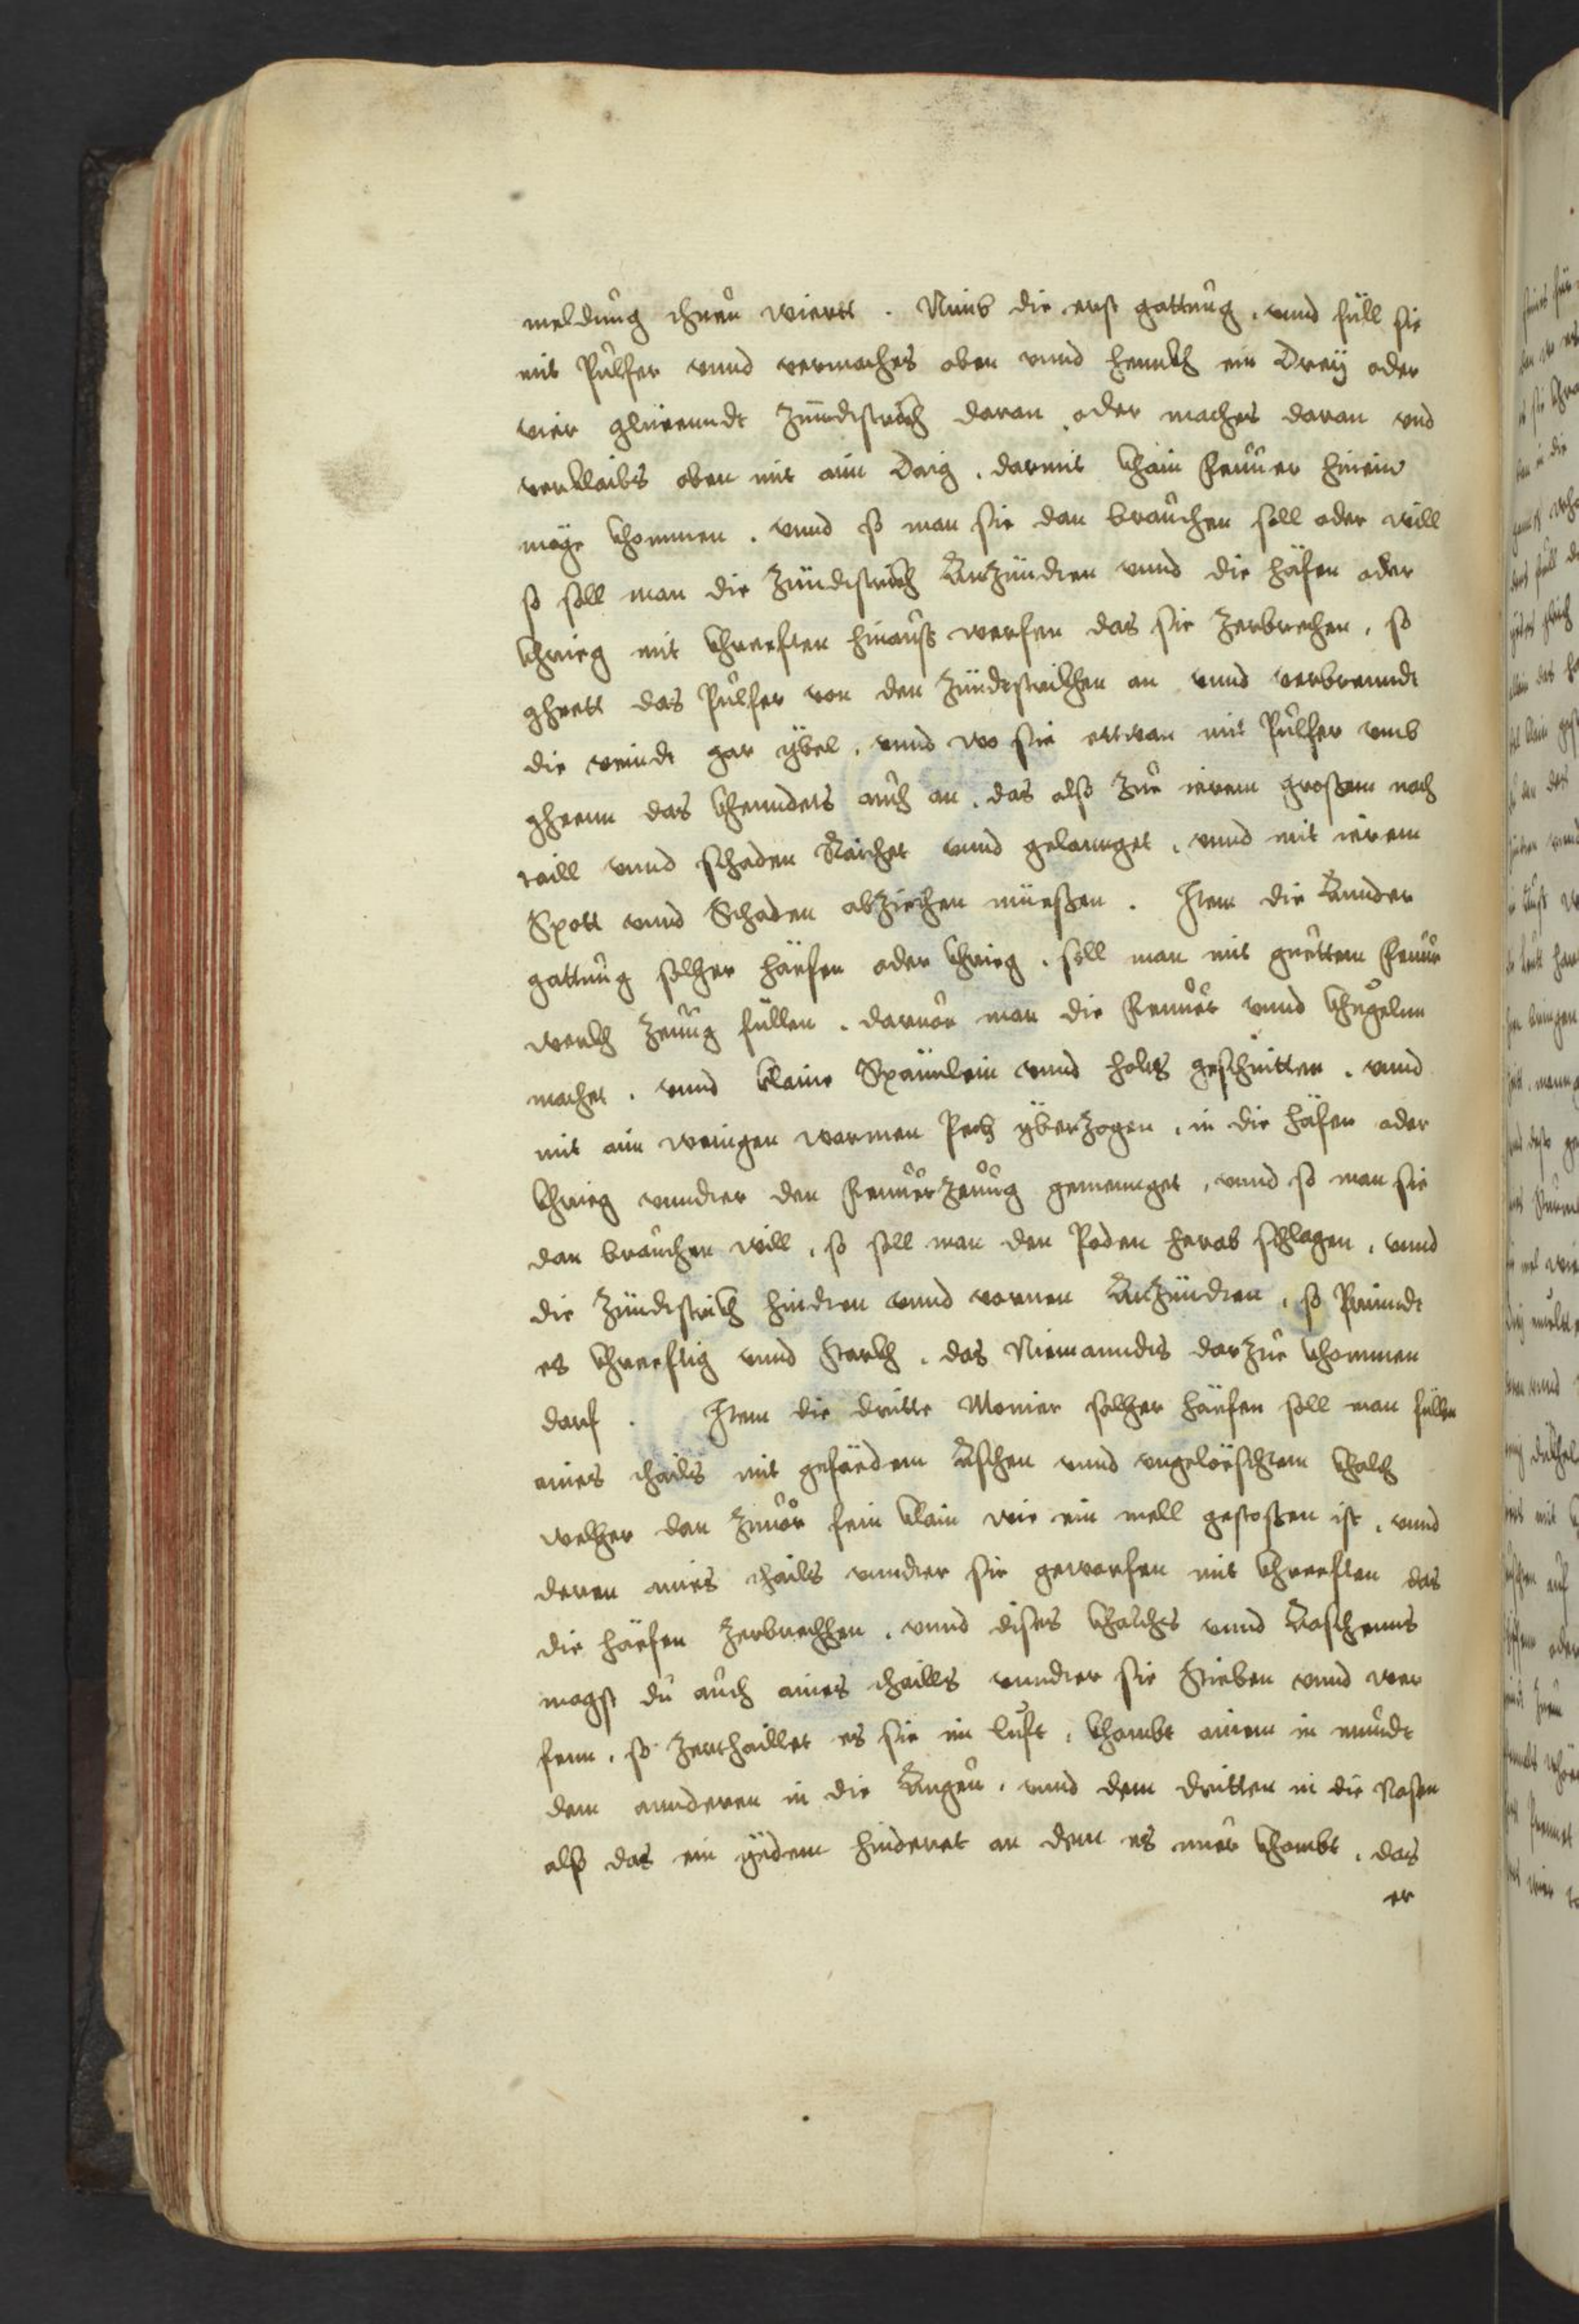 meldung thuen wiertt . Nimb die erst gattung . vnnd füll sie
mit Pulfer vnnd vermachs oben vnnd hennckh ein Dreÿ oder
vier glüeenndt Zündtstrickh daran . oder machs daran vnd
verklaibs oben mit aim Daig . darmit khain Feuuer hinein
möge khommen . vnnd so man sie dan brauchen soll oder will
so soll man die Zündtstrickh Anzündten vnnd die häfen oder
khrieg mit khrefften hinauß werfen das sie Zerbrechen . so
gheett das Pulfer von den Zündtstrickhen an vnnd verbrenndt
die veindt gar ÿbel . vnnd wo sie ettwan mit Pulfer vmb
gheenn das khenndts auch an . das also Zue ierem grossem nach
taill vnnd schaden Raichet vnnd gelannget . vnnd mit ierem
Spott vnnd Schaden abziechen müessen . Item die Annder
gattung solcher häefen oder khrieg . soll man mit guettem Feuer
werckh Zeüg füllen . daruon man die Feuuer vnnd khuglnn
machet . vnnd klaine Spännlein vnnd holz geschnitten . vnnd
mit aim wenigen warmen Pech ÿberzogen . in die häfen oder
khrieg vnndter den Feuuerzeug gemennget . vnnd so man sie
dan brauchen will . so soll man den Poden herab schlagen . vnnd
die Zündtstrickh hindten vnnd vornen Anzündten . so Prinndt
es khrefftig vnnd starckh . das Niemanndts darzue khommen
darf . Item die dritte Monier solcher häefen soll man füllen
aines thails mit gefäedem Aschen vnnd vngelöeschtem khalch
welcher dan Zuuor fein klain wie ein mell gestossen ist . vnnd
deren aines thails vnndter sie geworfen mit khrefften das
die häefen Zerbrechen . vnnd dises khalchs vnnd Aaschenns
magst du auch aines thaills vnndter sie Stieben vnnd wer
fenn . so Zerthaillet es sie im Luft . khombt ainem in mundt
dem annderen in die Augen . vnnd dem dritten in die Nasen
also das ein ÿedem hinderet an dem es nuer khombt . das
er